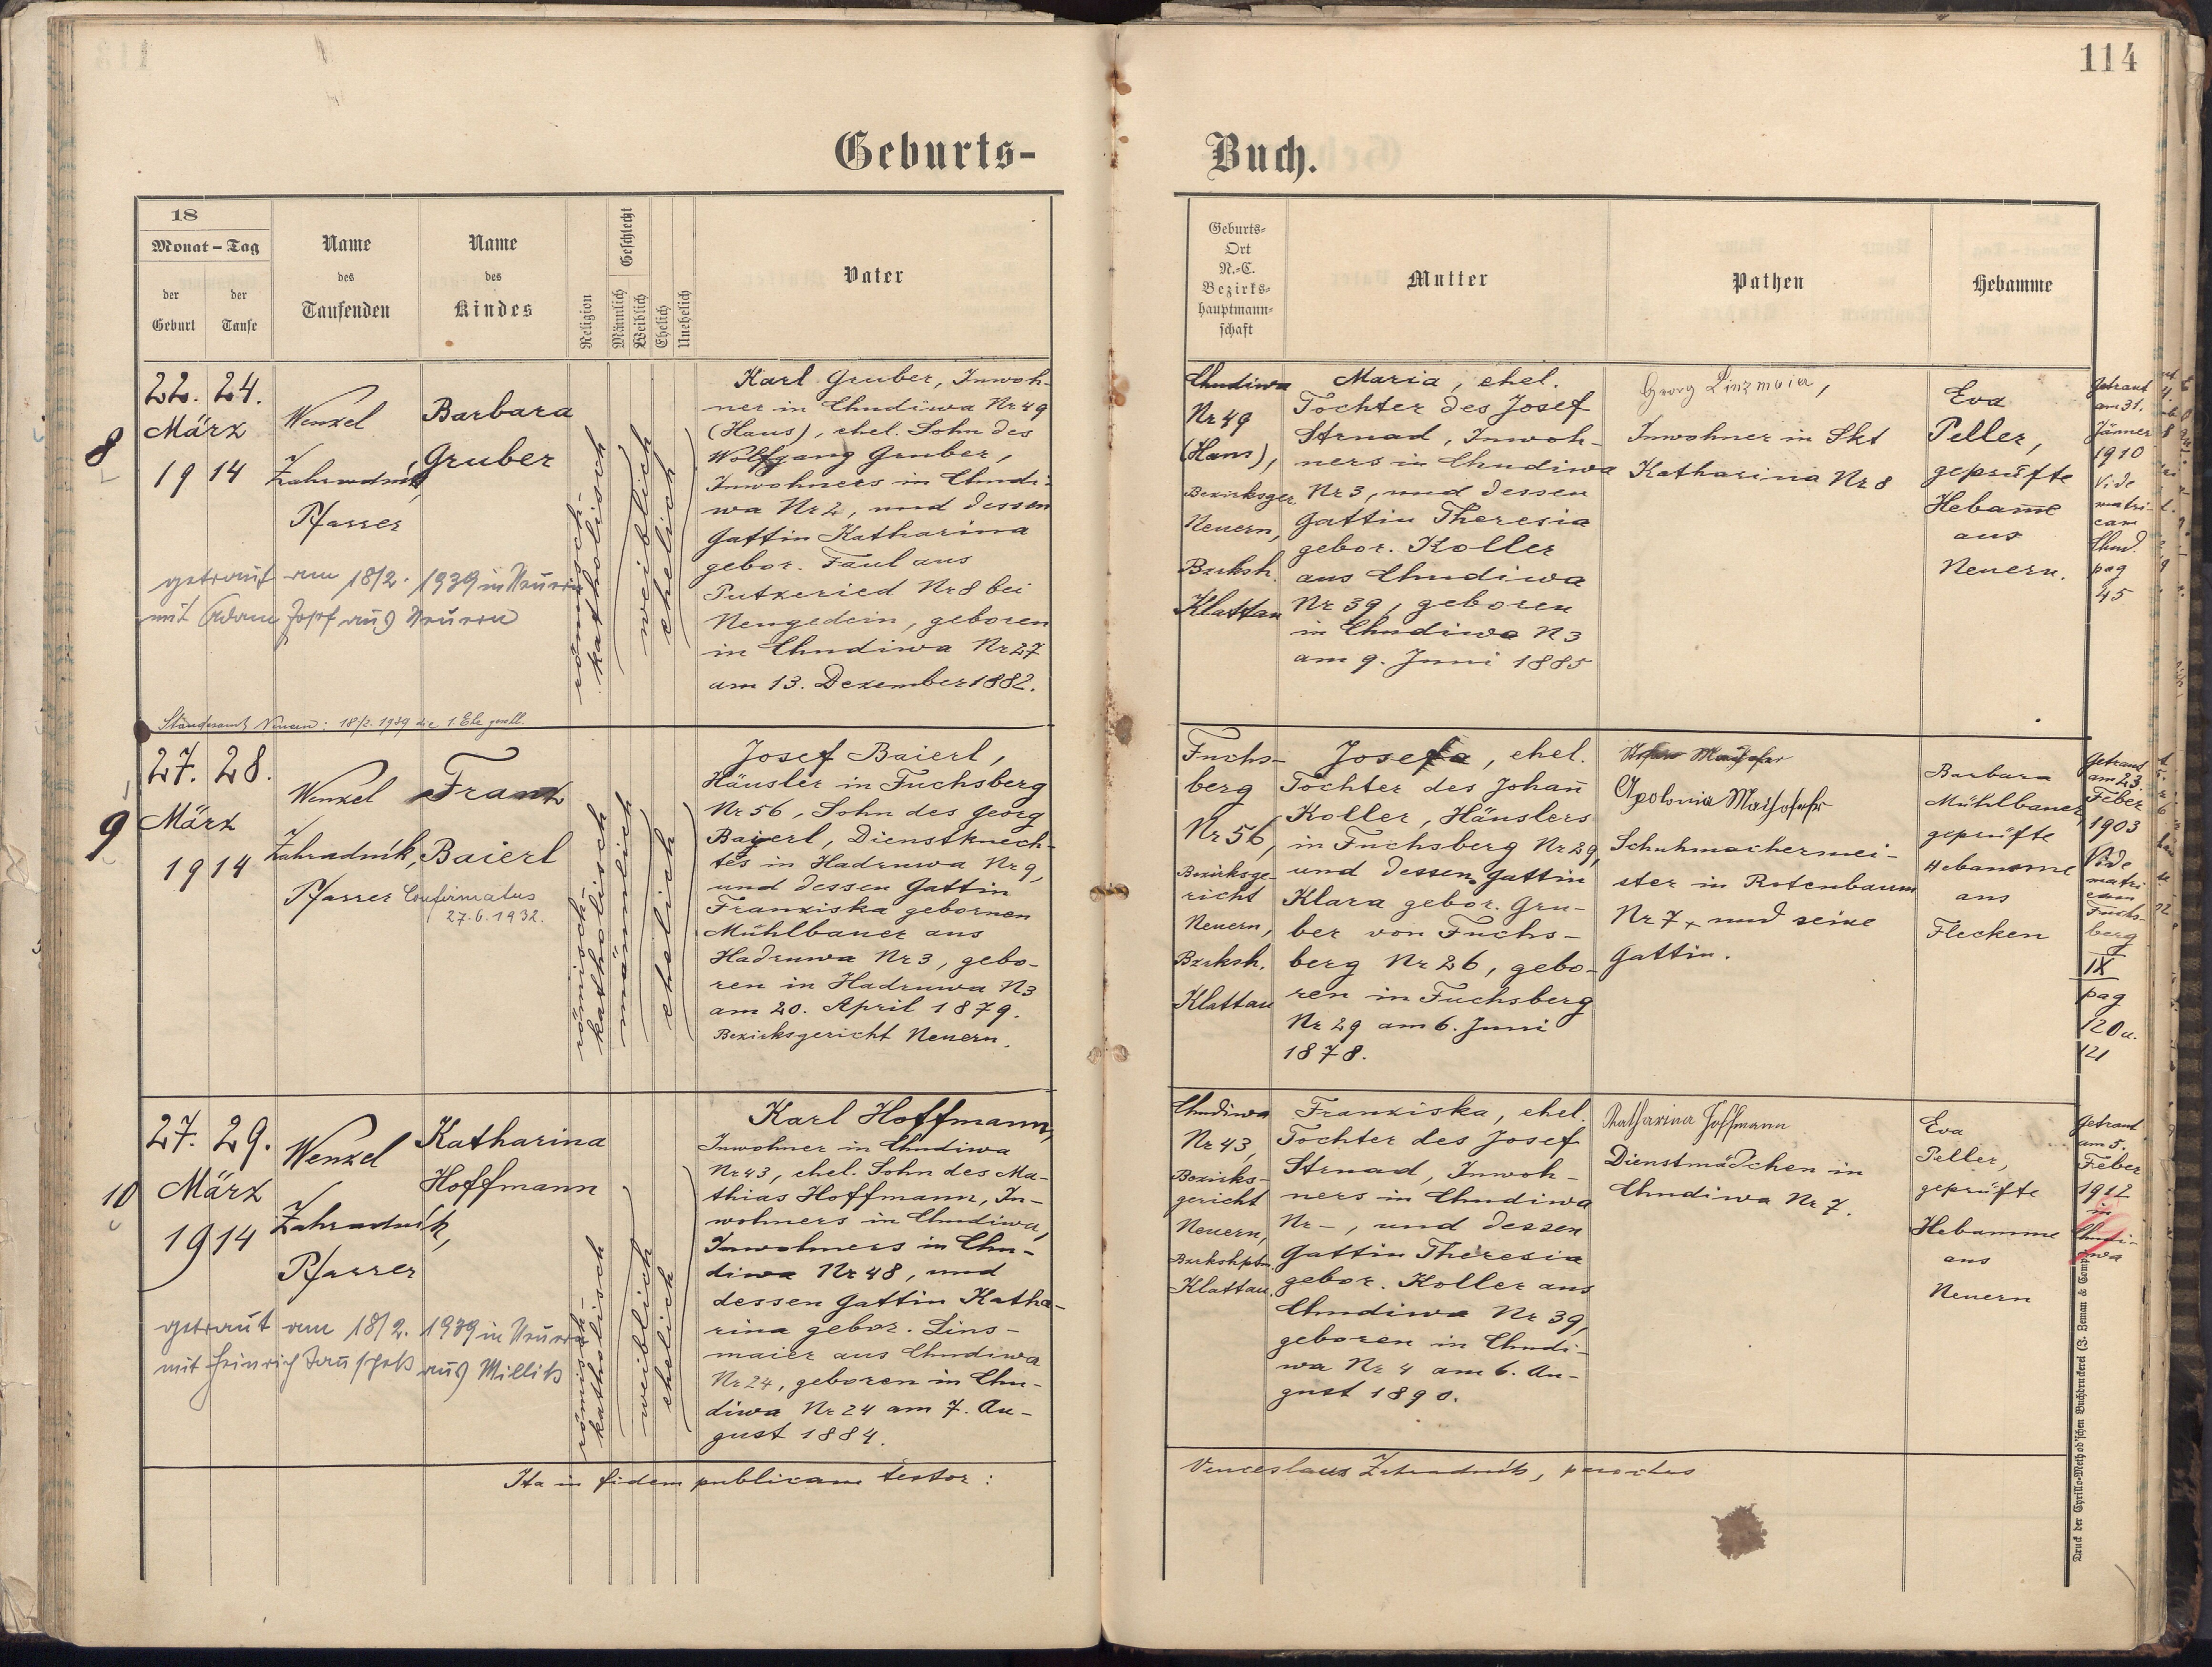 114
Geburts-
Buch.
18
Monat – Tag
der Geburt
der Taufe
Name
des
Taufenden
Name
des
Kindes
Religion
Geschlecht
Männlich
Weiblich
Ehelich
Unehelich
Vater
Geburts-
Ort
N.-C.
Bezirks-
hauptmann-
schaft
Mutter
Pathen
Hebamme
8
22. 24.
März
1914
Wenzel
Zahradník,
Pfarrer
Barbara
Gruber
römisch-
katholisch
weiblich
ehelich
Karl Gruber, Inwoh-
ner in Chudiwa Nr 49
(Haus), ehel. Sohn des
Wolfgang Gruber,
Inwohners in Chudi-
wa Nr 2, und dessen
Gattin Katharina
gebor. Faul aus
Putzeried Nr 8 bei
Neugedein, geboren
in Chudiwa Nr 27
am 13. Dezember 1882.
getraut am 18/2. 1939 in Neuern
mit Adam Zopf aus Neuern
Standesamt Neuern: 18/2. 1939 die 1. Ehe geschl.
Chudiwa
Nr 49
(Haus),
Bezirksger.
Neuern,
Bzrksh.
Klattau
Maria, ehel.
Tochter des Josef
Strnad, Inwoh-
ners in Chudiwa
Nr 3, und dessen
Gattin Theresia
gebor. Koller
aus Chudiwa
Nr 39, geboren
in Chudiwa N 3
am 9. Juni 1885
Georg Linzmaier,
Inwohner in Skt
Katharina Nr 8
Eva
Peller,
geprüfte
Hebam̅e
aus
Neuern.
Getraut
am 31.
Jänner
1910
Vide
matri-
cam
Chud.
pag
45
9
27. 28.
März
1914
Wenzel
Zahradník,
Pfarrer
Franz
Baierl
Confirmatus
27.6.1932.
römisch-
katholisch
männlich
ehelich
Josef Baierl,
Häusler in Fuchsberg
Nr 56, Sohn des Georg
Baierl, Dienstknech-
tes in Hadruwa Nr 9,
und dessen Gattin
Franziska gebornen
Mühlbauer aus
Hadruwa Nr 3, gebo-
ren in Hadruwa N 3
am 20. April 1879.
Bezirksgericht Neuern.
Fuchs-
berg
Nr 56,
Bezirksge-
richt
Neuern,
Bzrksh.
Klattau
Josefa, ehel.
Tochter des Johan̅
Koller, Häuslers
in Fuchsberg Nr 29,
und dessen Gattin
Klara gebor. Gru-
ber von Fuchs-
berg Nr 26, gebo-
ren in Fuchsberg
Nr 29 am 6. Juni
1878.
Apolonia Maihofer
Schuhmachermei-
ster in Rotenbaum
Nr 7 + und seine
Gattin.
Barbara
Mühlbauer,
geprüfte
Hebamme
aus
Flecken
Getraut
am 23.
Feber
1903
Vide
matri
cam
Fuchs-
berg
IX
pag
120 u.
121
10
27. 29.
März
1914
Wenzel
Zahradník,
Pfarrer
Katharina
Hoffmann
römisch-
katholisch
weiblich
ehelich
Karl Hoffmann,
Inwohner in Chudiwa
Nr 43, ehel. Sohn des Ma-
thias Hoffmann, In-
wohners in Chudiwa,
Inwohners in Chu-
diwa Nr 48, und
dessen Gattin Katha-
rina gebor. Lins-
maier aus Chudiwa
Nr 24, geboren in Chu-
diwa Nr 24 am 7. Au-
gust 1884.
getraut am 18/2. 1939 in Neuern
mit Heinrich aus Millik
Chudiwa
Nr 43,
Bezirks-
gericht
Neuern,
Bzrkshptm.
Klattau.
Franziska, ehel.
Tochter des Josef
Strnad, Inwoh-
ners in Chudiwa
Nr –, und dessen
Gattin Theresia
gebor. Koller aus
Chudiwa Nr 39,
geboren in Chudi-
wa Nr 4 am 6. Au-
gust 1890.
Katharina Hoffmann
Dienstmädchen in
Chudiwa Nr 7.
Eva
Peller,
geprüfte
Hebamme
aus
Neuern
Getraut
am 5.
Feber
1912
in
Chudi-
wa
Ita in fidem publicam testor:
Venceslaus Zahradník, parochus
Druck der Cyrillo-Method'schen Buchdruckerei (J. Zeman & Comp.